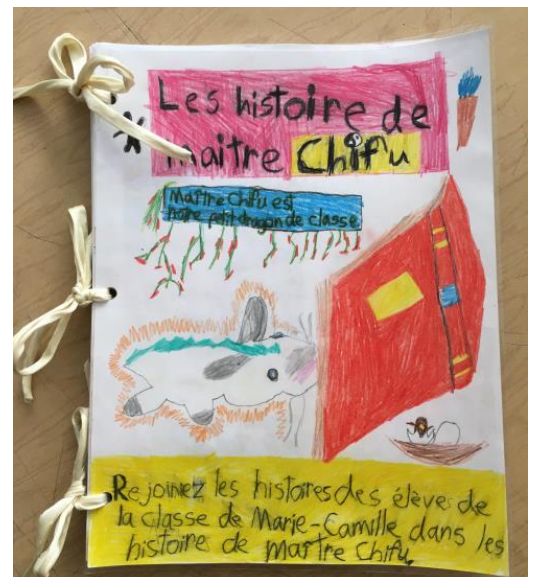 Les histoire de
maître Chifu
Maître Chifu est
notre petit dragon de classe
Rejoinez les histoires des élèves de
la classe de Marie-Camille dans les
histoire de maître Chifu